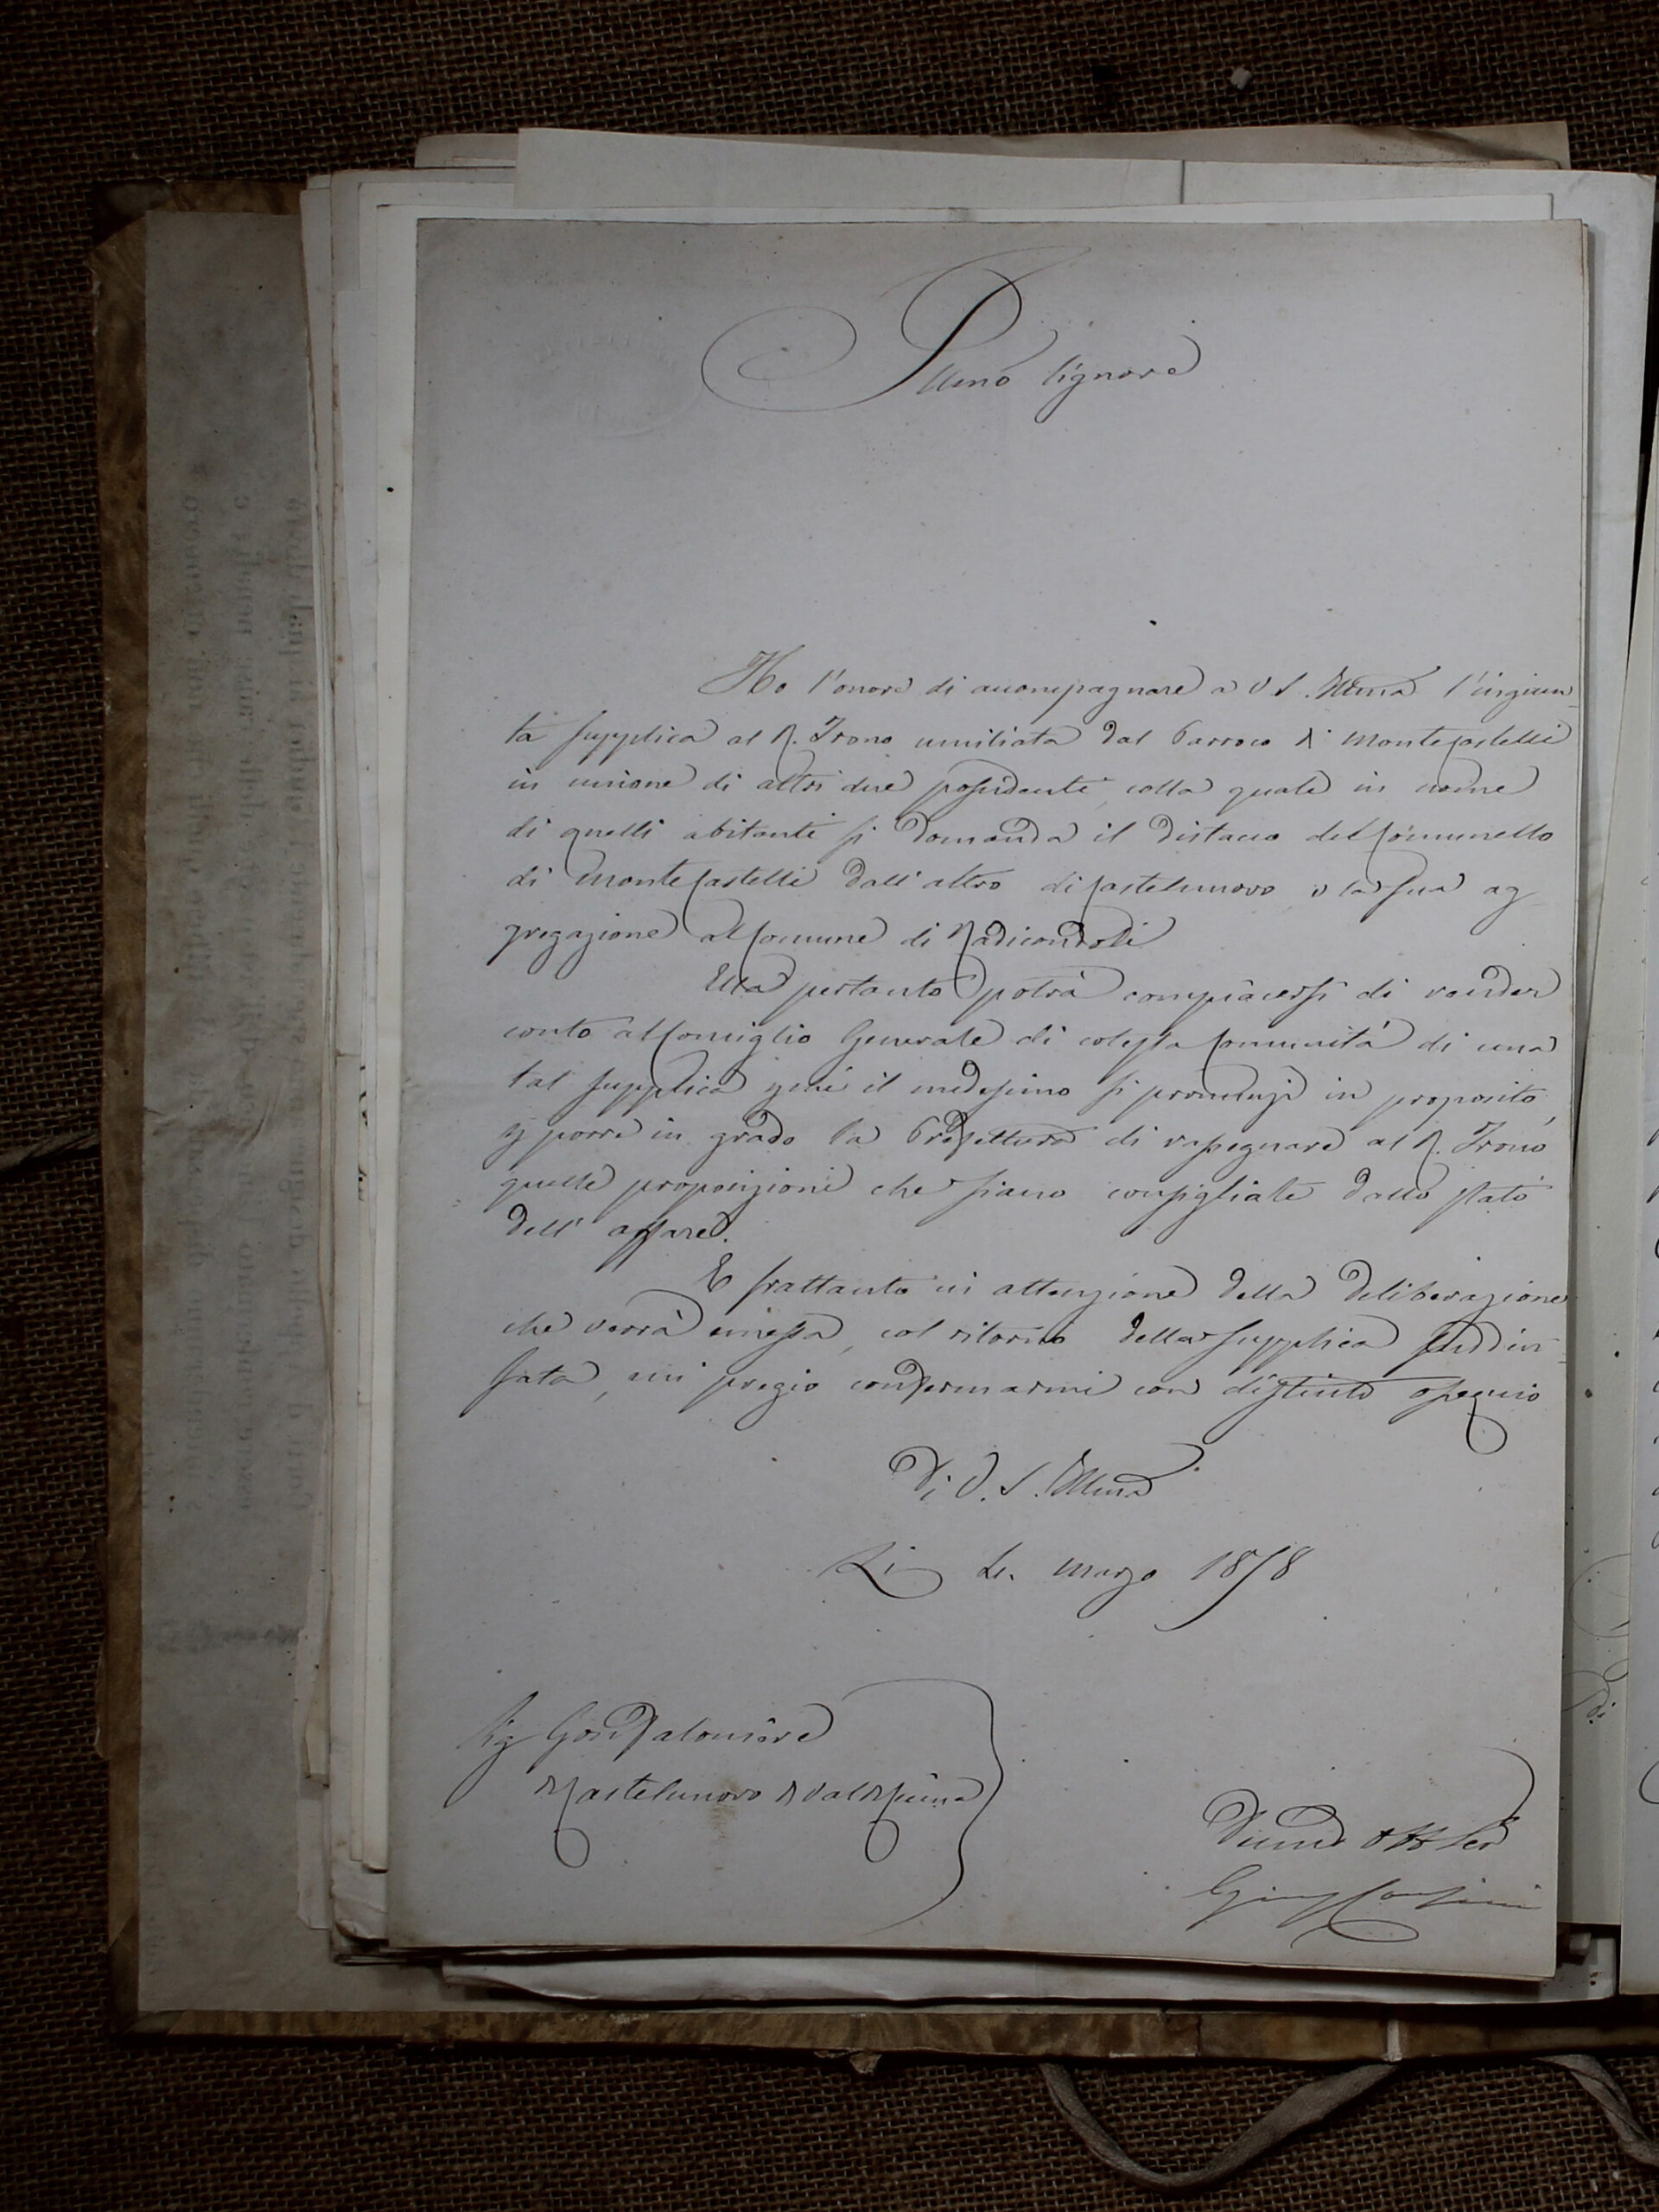 Illmo Signore
Ho l'onore di accompagnare a V S. Illma l'ingiun
ta supplica al R. Trono umiliata dal Parroco di Montecastelli
in unione di altri due possidenti, colla quale in nome
di quelli abitanti si domanda il distacco del Comunello
di Montecastelli dall'altro di Castelnuovo e la sua ag
gregazione al Comune di Radicondoli
Ella pertanto potrà compiacersi di render
conto al Consiglio Generale di cotesta Comunità di una
tal supplica il medesimo si pronunzi in proposito,
porre in grado la Prefettura di rassegnare al R. Trono
quelle proposizioni che siano consigliate dallo stato
dell' affare.
E frattanto in attenzione della deliberazione
che verrà emessa, col ritorno della supplica suddivi
sata, mi pregio confermarmi con distinto ossequio
Di V. S. Illma
Li marzo 1858
Sig Gonfaloniere
di Castelnuovo di Val di Cecina